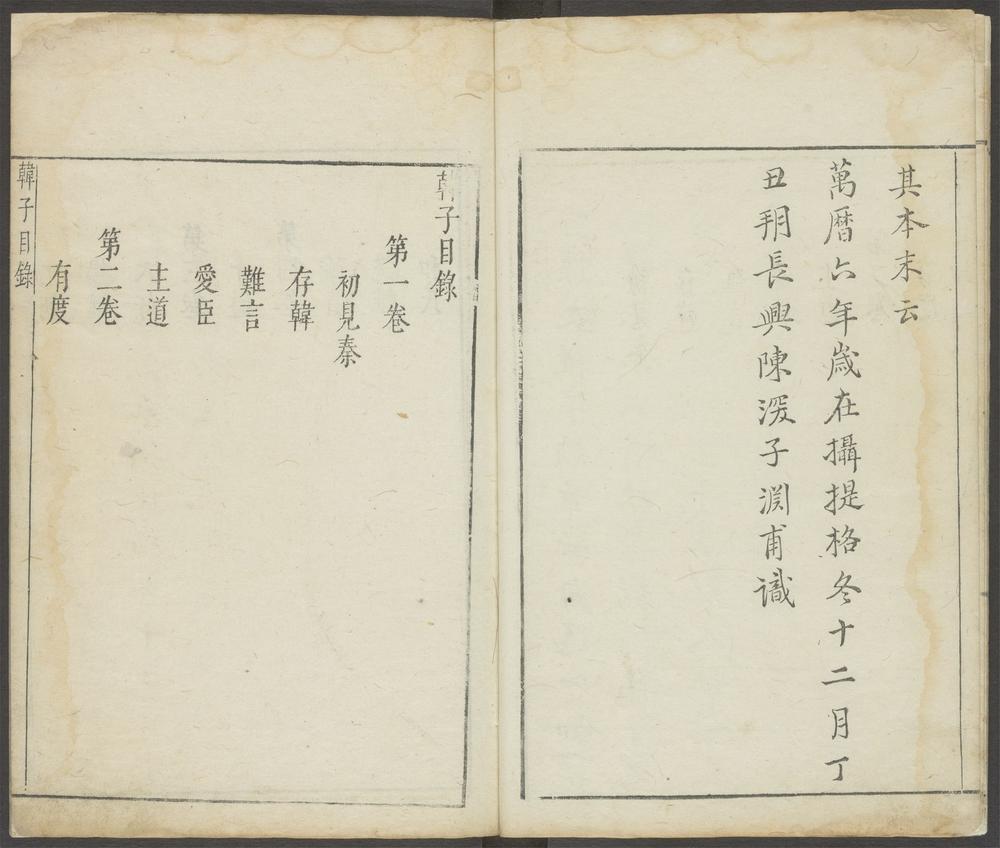 其本末云
萬曆六年歲在攝提格冬十二月丁
丑朔長興陳深子淵甫識
韓子目錄
第一卷
初見秦
存韓
難言
愛臣
主道
第二卷
有度
韓子目錄